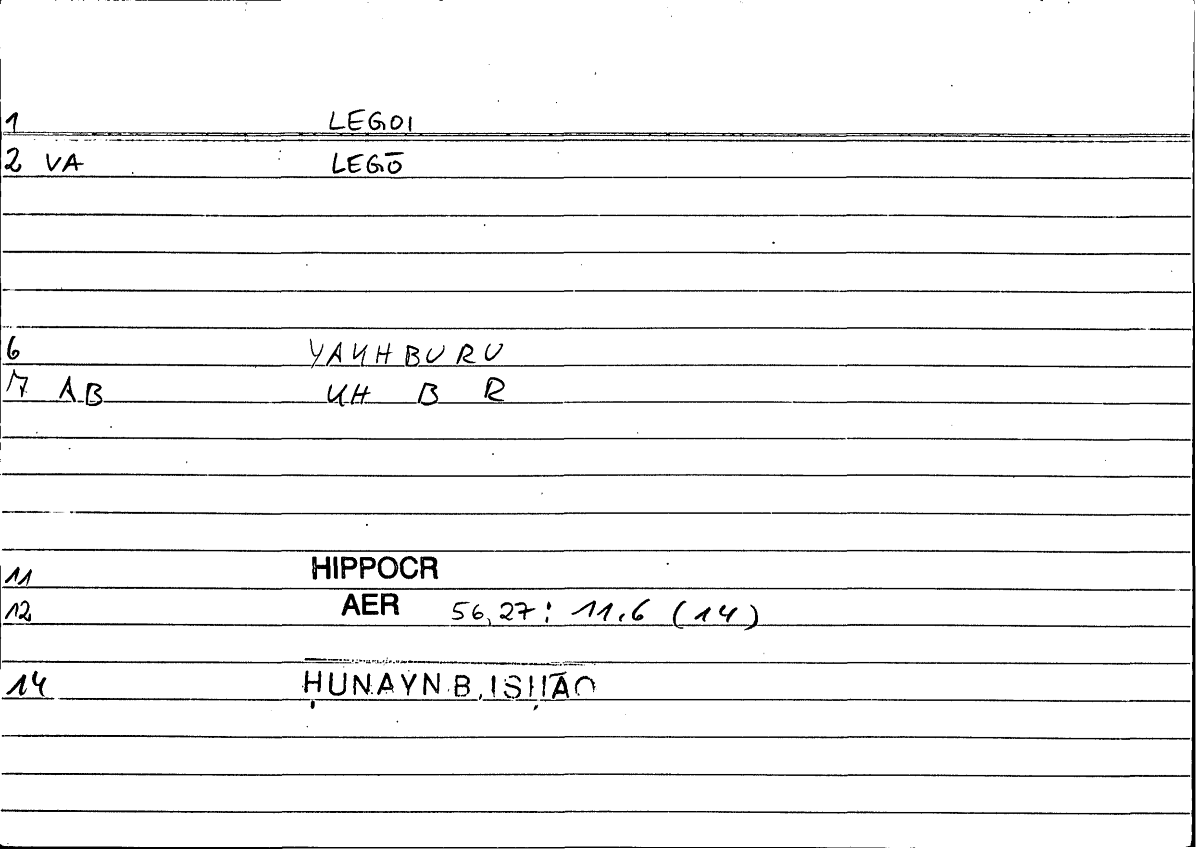 1 LEGOI
2 VA LEGŌ
6 YAKHBURU
7 AB KH B R
11 HIPPOCR
12 AER 56,27: 11.6 (14)
14 ḤUNAYN B. ISḤĀQ